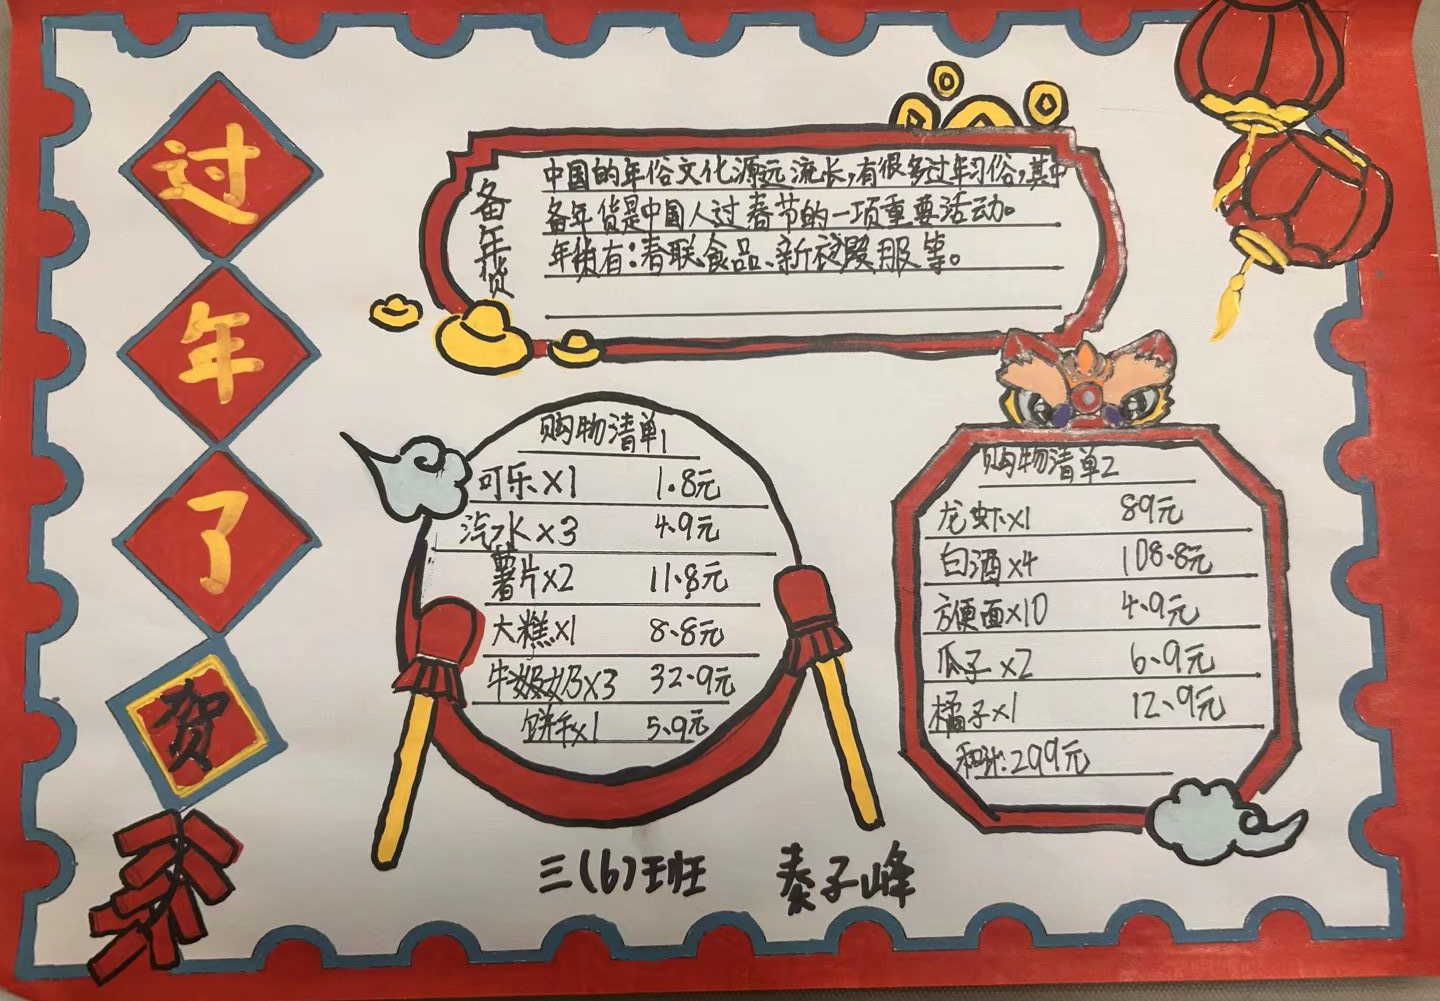 过
年
了
贺
备年货
中国的年俗文化源远流长,有很多过年习俗,其中
备年货是中国人过春节的一项重要活动。
年货有:春联、食品、新衣服等。
购物清单1
可乐×1 1.8元
汽水×3 4.9元
薯片×2 11.8元
大糕×1 8.8元
牛奶×3 32.9元
饼干×1 5.9元
购物清单2
龙虾×1 89元
白酒×4 108.8元
方便面×10 4.9元
瓜子×2 6.9元
橘子×1 12.9元
和计:299元
三(6)班 秦子峰